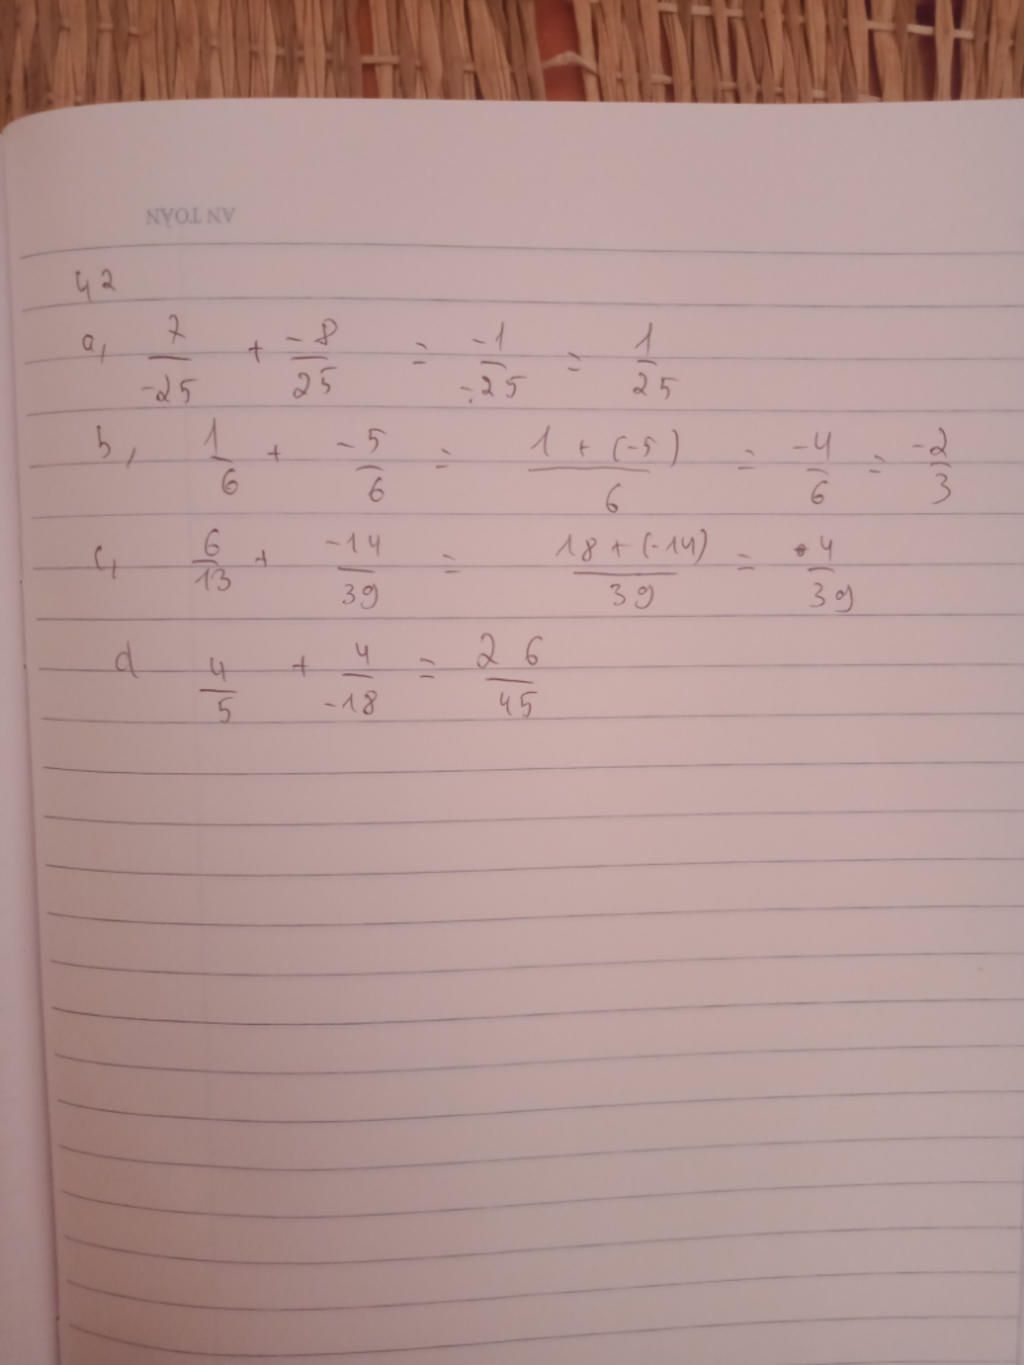 AN TOÀN
42
a, 7/-25 + -8/25 = -1/-25 = 1/25
b, 1/6 + -5/6 = 1 + (-5)/6 = -4/6 = -2/3
c, 6/13 + -14/39 = 18 + (-14)/39 = 4/39
d 4/5 + 4/-18 = 26/45